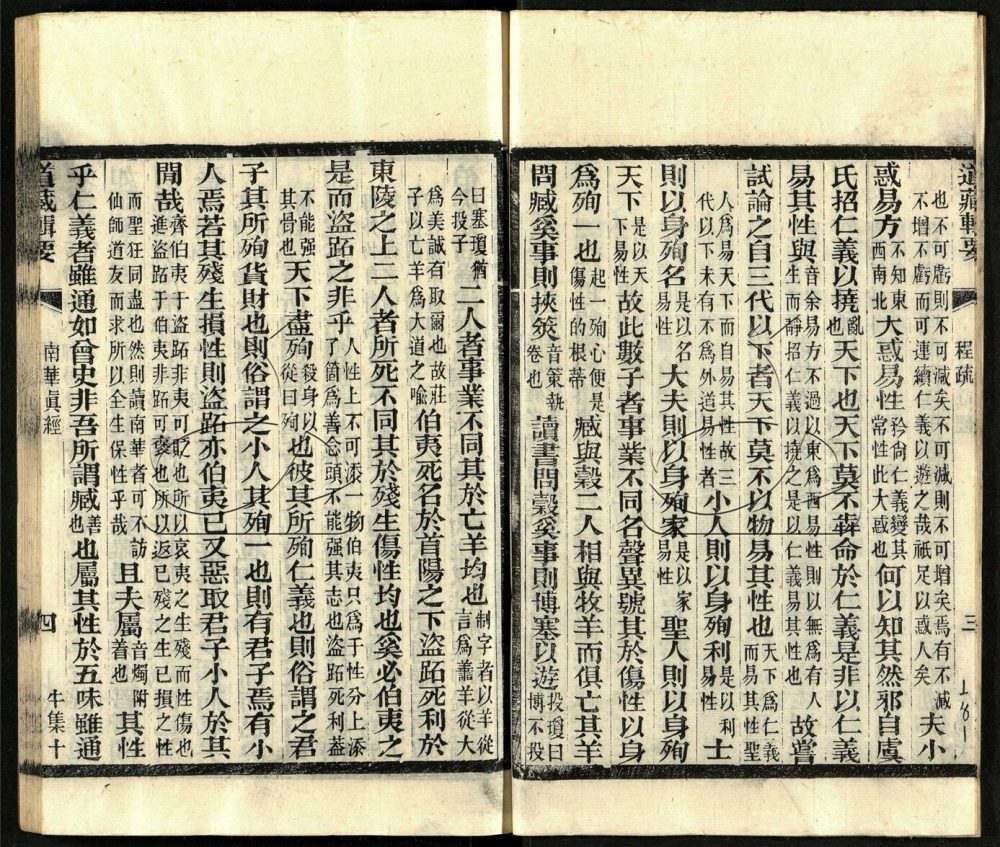 道藏輯要 程疏 三
也不可虧則不可減矣不可減則不可增矣焉有不減
不增不虧而可連續仁義以遊之哉祗足以或人矣
夫小
惑易方
不知東
西南北
大惑易性
矜尙仁義變其
常性此大惑也
何以知其然邪自虞
氏招仁義以撓亂也天下也天下莫不犇命於仁義是非以仁義
易其性與
音余易方不過以東爲西易性則以無爲有人
生而靜招仁義以撓之是以仁義易其性也
故嘗
試論之自三代以下者天下莫不以物易其性也
天下爲仁義
而易其性聖
人爲易天下而自易其性故三
代以下未有不爲外道易性者
小人則以身殉利
是以利
易性
士
則以身殉名
是以名
易性
大夫則以身殉家
是以家
易性
聖人則以身殉
天下
是以天
下易性
故此數子者事業不同名聲異號其於傷性以身
爲殉一也
起一殉心便是
傷性的根蒂
臧與穀二人相與牧羊而俱亡其羊
問臧奚事則挾筴
音策執
卷也
讀書問穀奚事則博塞以遊
投瓊曰
博不投
曰塞瓊猶
今投子
二人者事業不同其於亡羊均也
制字者以羊從
言爲善羊從大
爲美誠有取爾也故莊
子以亡羊爲大道之喻
伯夷死名於首陽之下盜跖死利於
東陵之上二人者所死不同其於殘生傷性均也奚必伯夷之
是而盜跖之非乎
人性上不可添一物伯夷只爲于性分上添
了箇爲善念頭不能强其志也盜跖死利盖
不能强
其骨也
天下盡殉
殺身以
從曰殉
也彼其所殉仁義也則俗謂之君
子其所殉貨財也則俗謂之小人其殉一也則有君子焉有小
人焉若其殘生損性則盜跖亦伯夷已又惡取君子小人於其
閒哉
齊伯夷于盜跖非夷可貶也所以哀夷之生殘而性傷也
進盜跖于伯夷非跖可褒也所以返已殘之生已損之性
而聖狂同盡也然則讀南華者可不訪
仙師道友而求所以全生保性乎哉
且夫屬
音燭附
着也
其性
乎仁義者雖通如曾史非吾所謂臧善也也屬其性於五味雖通
道藏輯要 南華眞經 四 牛集十